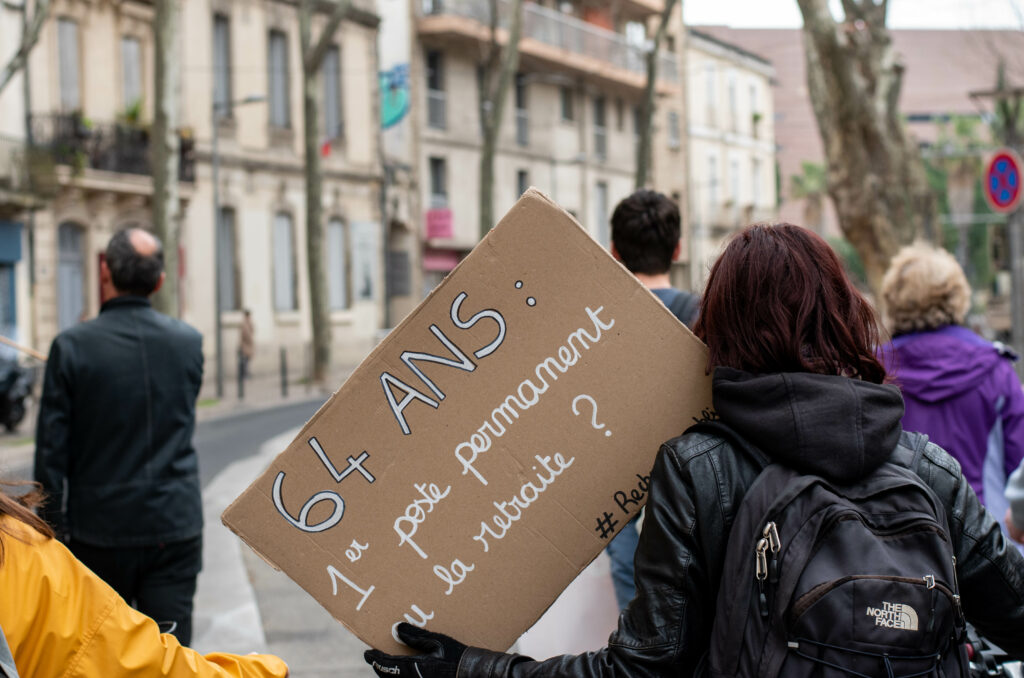 64 ANS :
1er poste permanent
ou la retraite ?
THE
NORTH
FACE